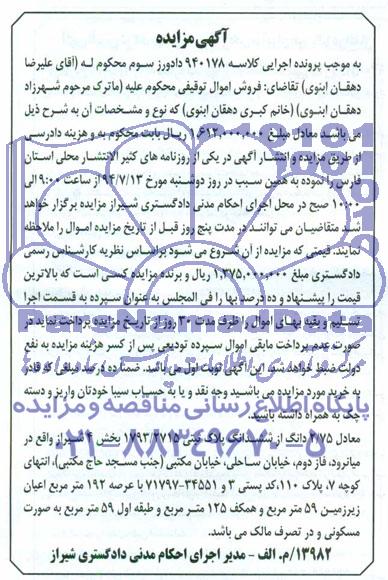 آگهی مزایده
به موجب پرونده اجرایی کلاسه ۹۴۰۱۷۸ دادورز سوم محکوم له (آقای علیرضا
دهقان ابنوی) تقاضای: فروش اموال توقیفی محکوم علیه (ماترک مرحوم شهرزاد
دهقان ابنوی) (خانم کبری دهقان ابنوی) که نوع و مشخصات آن به شرح ذیل
می باشد معادل مبلغ ۱,۶۱۲,۰۰۰,۰۰۰ ریال بابت محکوم به و هزینه دادرسی
از طریق مزایده و انتشار آگهی در یکی از روزنامه های کثیر الانتشار محلی استان
فارس را نموده به همین سبب در روز دوشنبه مورخ ۹۴/۷/۱۳ از ساعت ۹:۰۰ الی
۱۰:۰۰ صبح در محل اجرای احکام مدنی دادگستری شیراز مزایده برگزار خواهد
شد متقاضیان می توانند در مدت پنج روز قبل از تاریخ مزایده اموال را ملاحظه
نمایند. قیمتی که مزایده از آن شروع می شود براساس نظریه کارشناس رسمی
دادگستری مبلغ ۱,۳۷۵,۰۰۰,۰۰۰ ریال و برنده مزایده کسی است که بالاترین
قیمت را پیشنهاد و ده درصد بها را فی المجلس به عنوان سپرده به قسمت اجرا
تسلیم و بقیه بهای اموال را ظرف مدت ۳۰ روز از تاریخ مزایده پرداخت نماید در
صورت عدم پرداخت مابقی اموال سپرده تودیعی پس از کسر هزینه مزایده به نفع
دولت ضبط خواهد شد. این آگهی نوبت اول می باشد. ضمنا ده درصد مبلغی که قادر
به خرید مورد مزایده می باشید وجه نقد و یا به حساب سیبا خودتان واریز و دسته
چک به همراه داشته باشید.
معادل ۲/۷۵ دانگ از ششدانگ پلاک ثبتی ۱۷۹۳/۲۷۱۵ بخش ۴ شیراز واقع در
میانرود، فاز دوم، خیابان ساحلی، خیابان مکتبی (جنب مسجد حاج مکتبی)، انتهای
کوچه ۷، پلاک ۱۱۰، کد پستی ۳ و ۳۴۵۵۱-۷۱۷۹۷ با عرصه ۱۹۲ متر مربع اعیان
زیرزمین ۵۹ متر مربع و همکف ۱۲۵ متر مربع و طبقه اول ۵۹ متر مربع به صورت
مسکونی و در تصرف مالک می باشد.
۱۳۹۸۲/م. الف - مدیر اجرای احکام مدنی دادگستری شیراز
پایگاه اطلاع رسانی مناقصه و مزایده
۰۲۱-۸۸۳۴۹۶۷۰-۵